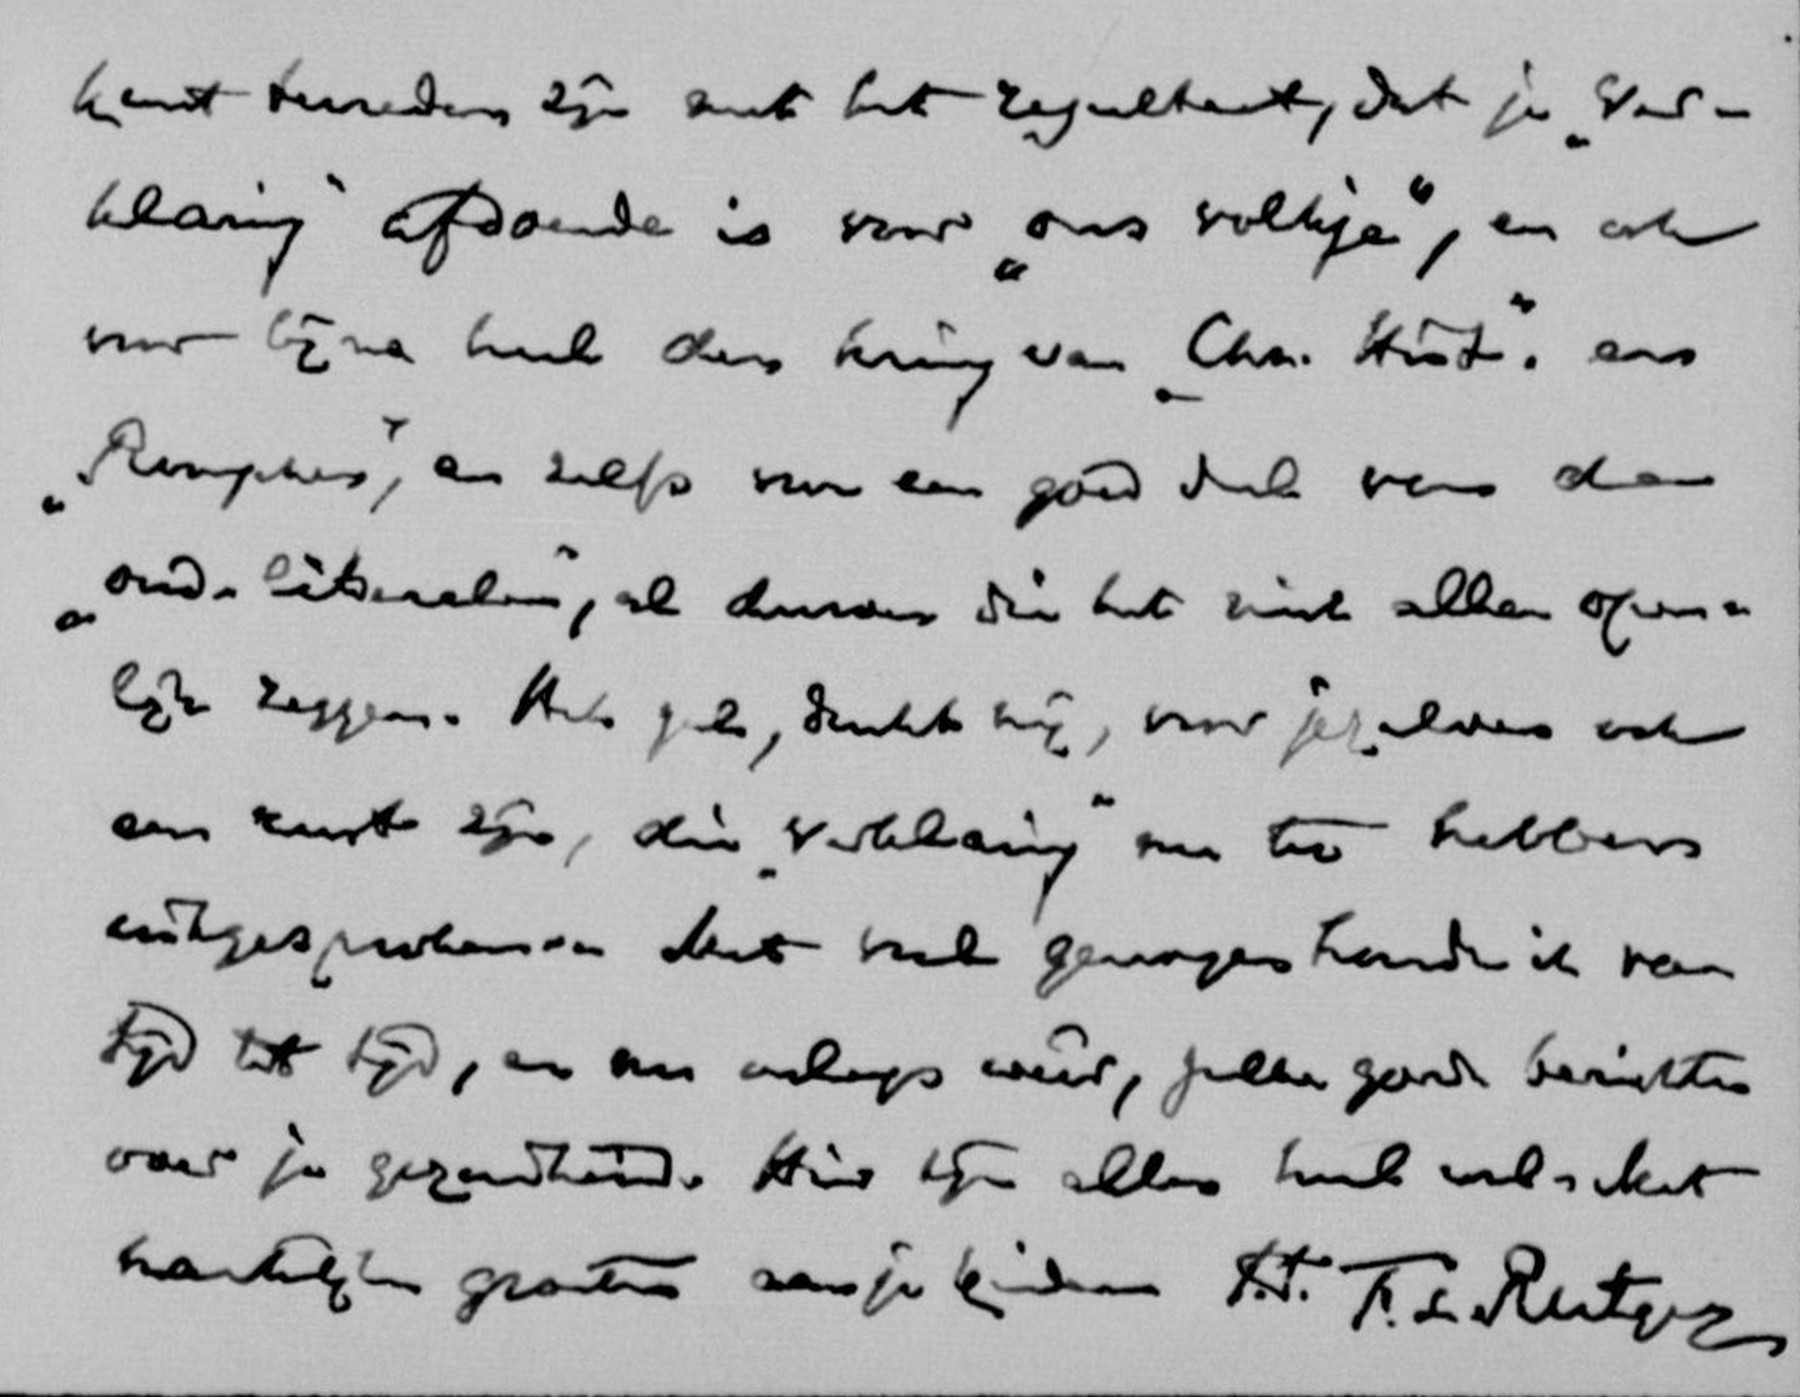 kunt tevreden zijn met het resultaat, dat je „Ver-
klaring" afdoende is voor „ons volkje", en ook
voor bijna heel den kring van „Chr. Hist". en
„Rome", en zelfs voor een goed deel van de
„oud-liberalen", al durven die het niet allen open-
lijk zeggen. Het zal, dunkt mij, voor jezelven ook
een rust zijn, die „Verklaring" nu te hebben
uitgesproken. Met veel genoegen hoorde ik van
tijd tot tijd, en nu onlangs weer, zulke goede berichten
over je gezondheid. Hier zijn allen heel wel. Met
hartelijke groeten aan je kinderen t.t. F. L. Rutgers